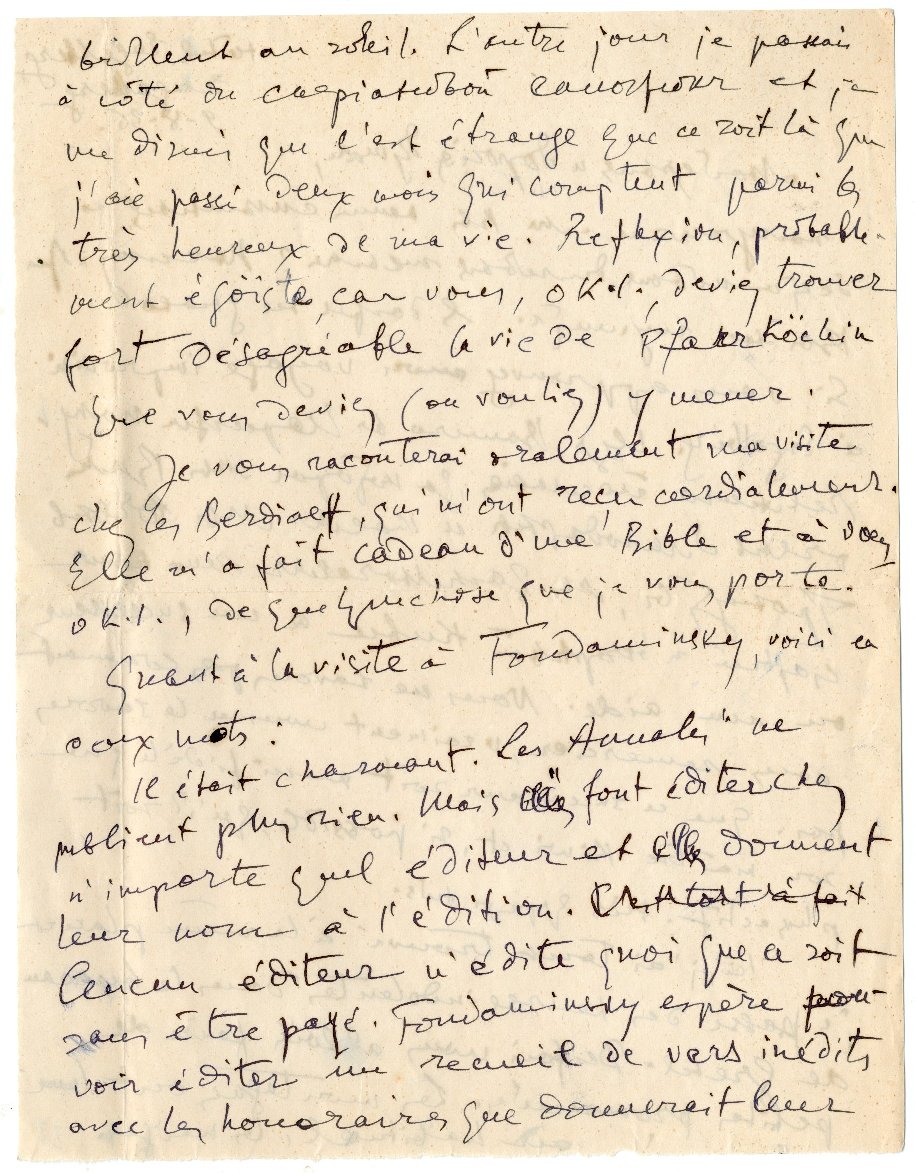 brillent au soleil. L'autre jour je passais
à côté du et je
me disais que c'est étrange que ce soit là que
j'aie passé deux mois qui comptent parmi les
très heureux de ma vie. Reflexion, probable-
ment égöiste, car vous, O.K.I., deviez trouver
fort désagréable la vie de PfarrKöchin
que vous deviez (ou vouliez) y mener.
Je vous raconterai oralement ma visite
chez les Berdiaeff, qui m'ont reçu cordialement.
Elle m'a fait cadeau d'une Bible et à vous,
O.K.I., de quelquechose que je vous porte.
Quant à la visite à Fondaminsky, voici en
deux mots :
Il était charmant. Les Annales ne
publient plus rien. Mais font éditer chez
n'importe quel éditeur et elles donnent
leur nom à l'édition. C'est tout à fait
Aucun éditeur n'édite quoi que ce soit
sans être payé. Fondaminsky espère pou-
voir éditer un recueil de vers inédits
avec les honoraires que donnerait leur